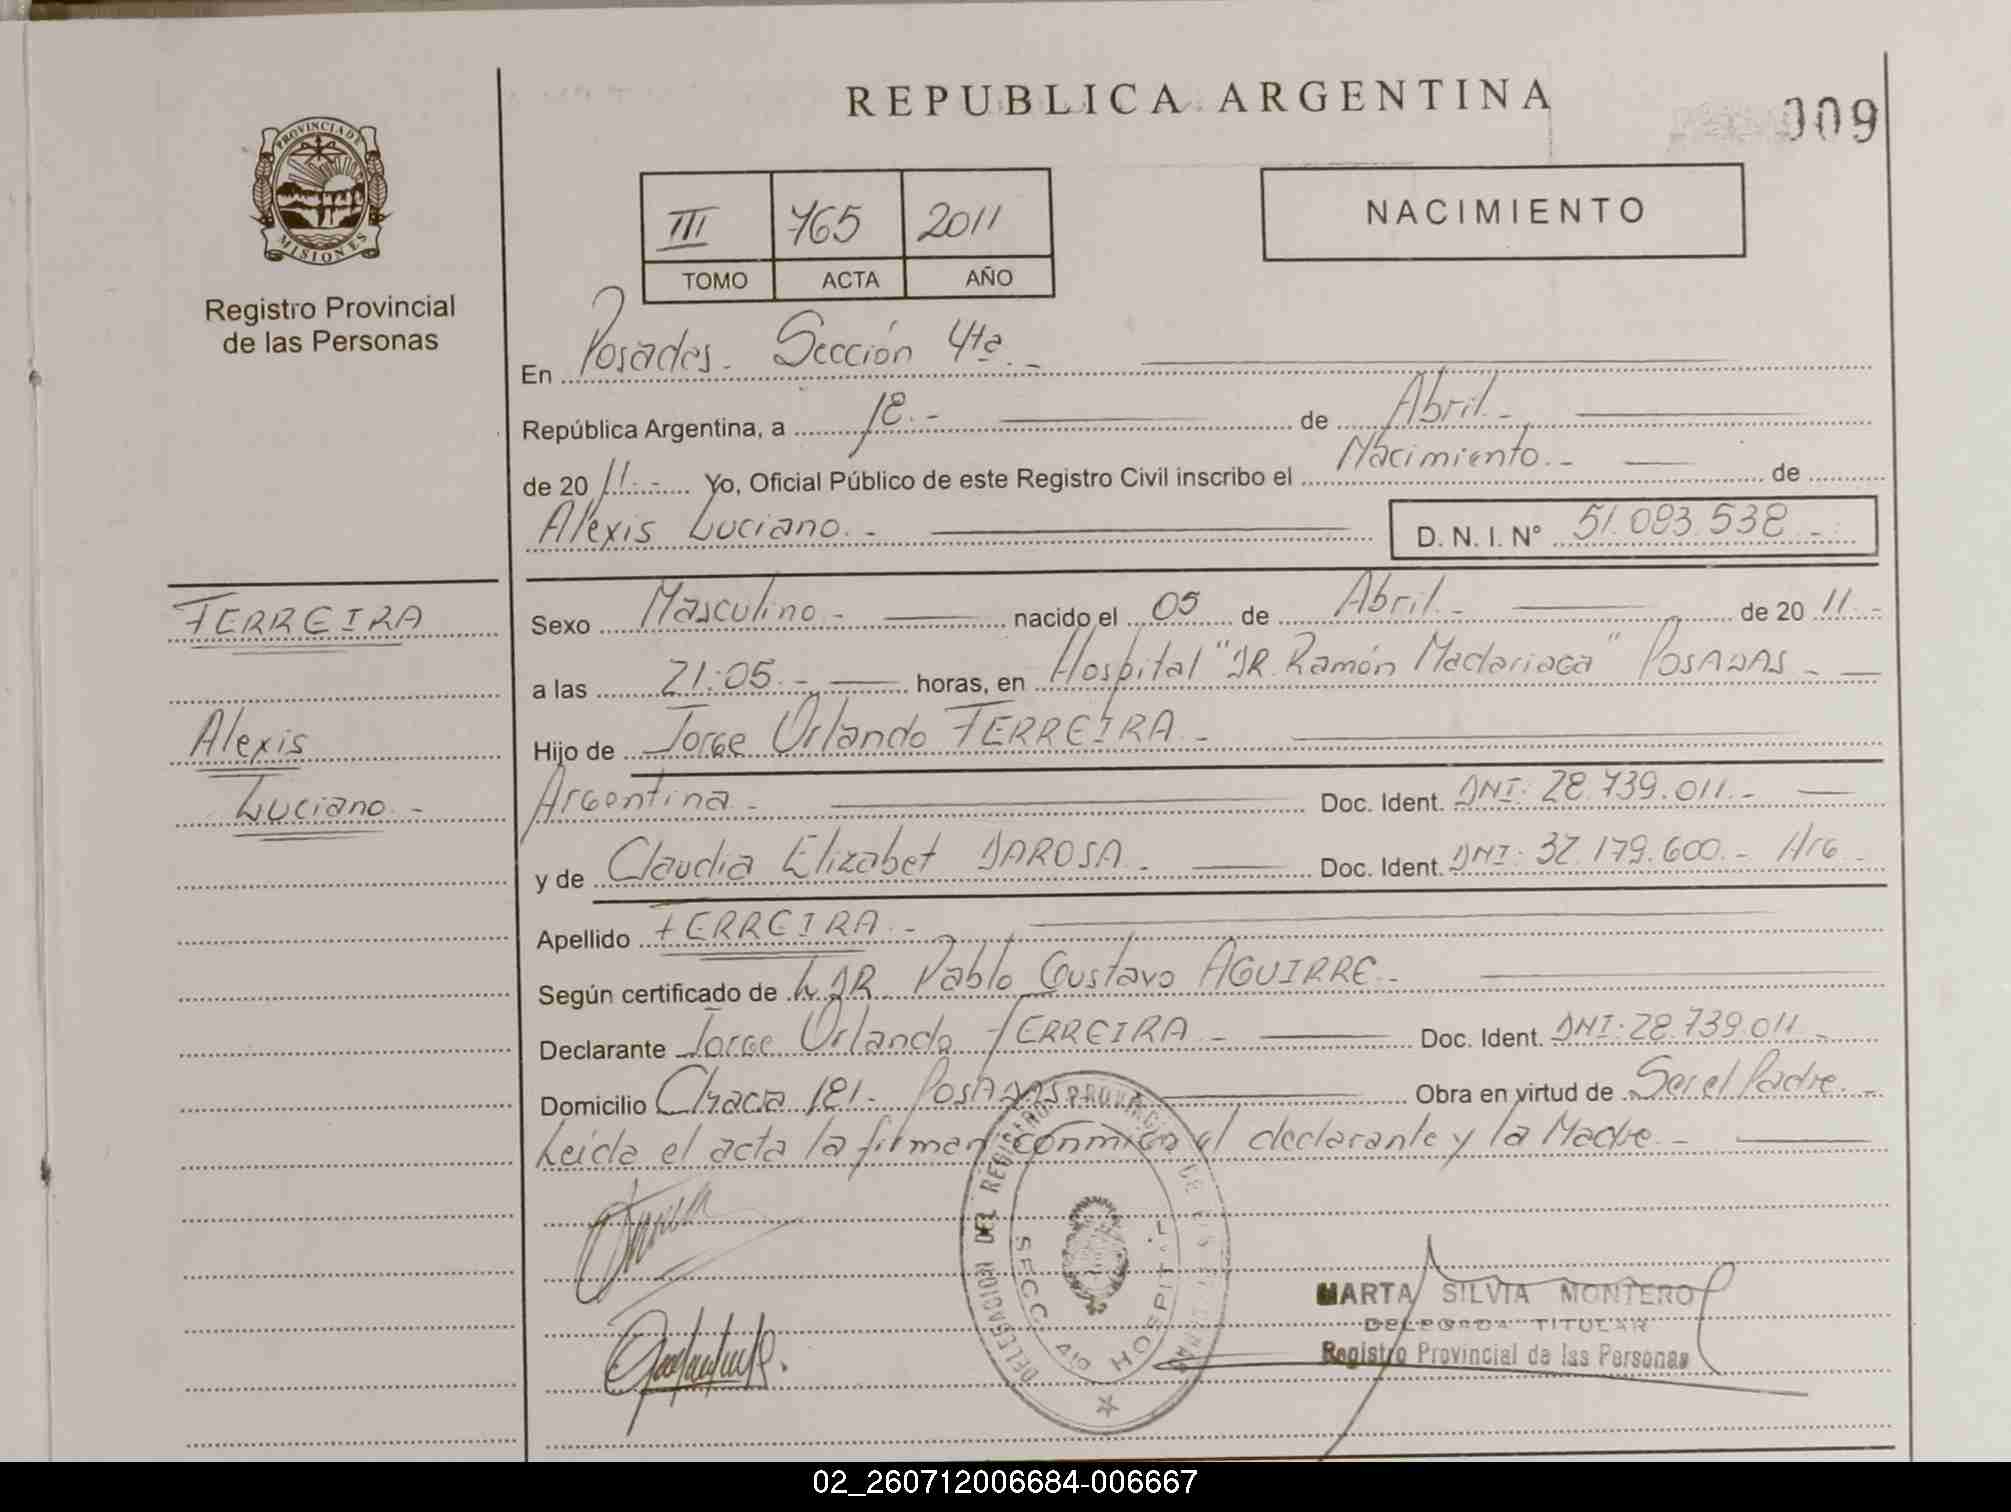 REPUBLICA ARGENTINA
009
PROVINCIA DE
MISIONES
Registro Provincial
de las Personas
III 765 2011
TOMO ACTA AÑO
NACIMIENTO
En Posadas. Sección 4ta.-
República Argentina, a 18.- de Abril.-
de 20 11.- Yo, Oficial Público de este Registro Civil inscribo el Nacimiento.- de
Alexis Luciano.- D. N. I. N° 51.083.538.-
FERREIRA
Alexis
Luciano.-
Sexo Masculino.- nacido el 05 de Abril.- de 20 11.-
a las 21:05.- horas, en Hospital "DR. Ramón Madariaga" POSADAS.-
Hijo de Jorge Orlando FERREIRA.-
Argentina.- Doc. Ident. DNI: 28.739.011.-
y de Claudia Elizabet DAROSA.- Doc. Ident. DNI: 32.179.600.- Arg.-
Apellido FERREIRA.-
Según certificado de DR. Pablo Gustavo AGUIRRE.-
Declarante Jorge Orlando FERREIRA.- Doc. Ident. DNI: 28.739.011.-
Domicilio Chacra 181.- POSADAS Obra en virtud de Ser el Padre.-
Leida el acta la firman conmigo el declarante y la Madre.-
DELEGACION DEL REGISTRO PROVINCIAL DE LAS
SECC. 4ta HOSPITAL
MARTA SILVIA MONTERO
DELEGADA TITULAR
Registro Provincial de las Personas
02_260712006684-006667